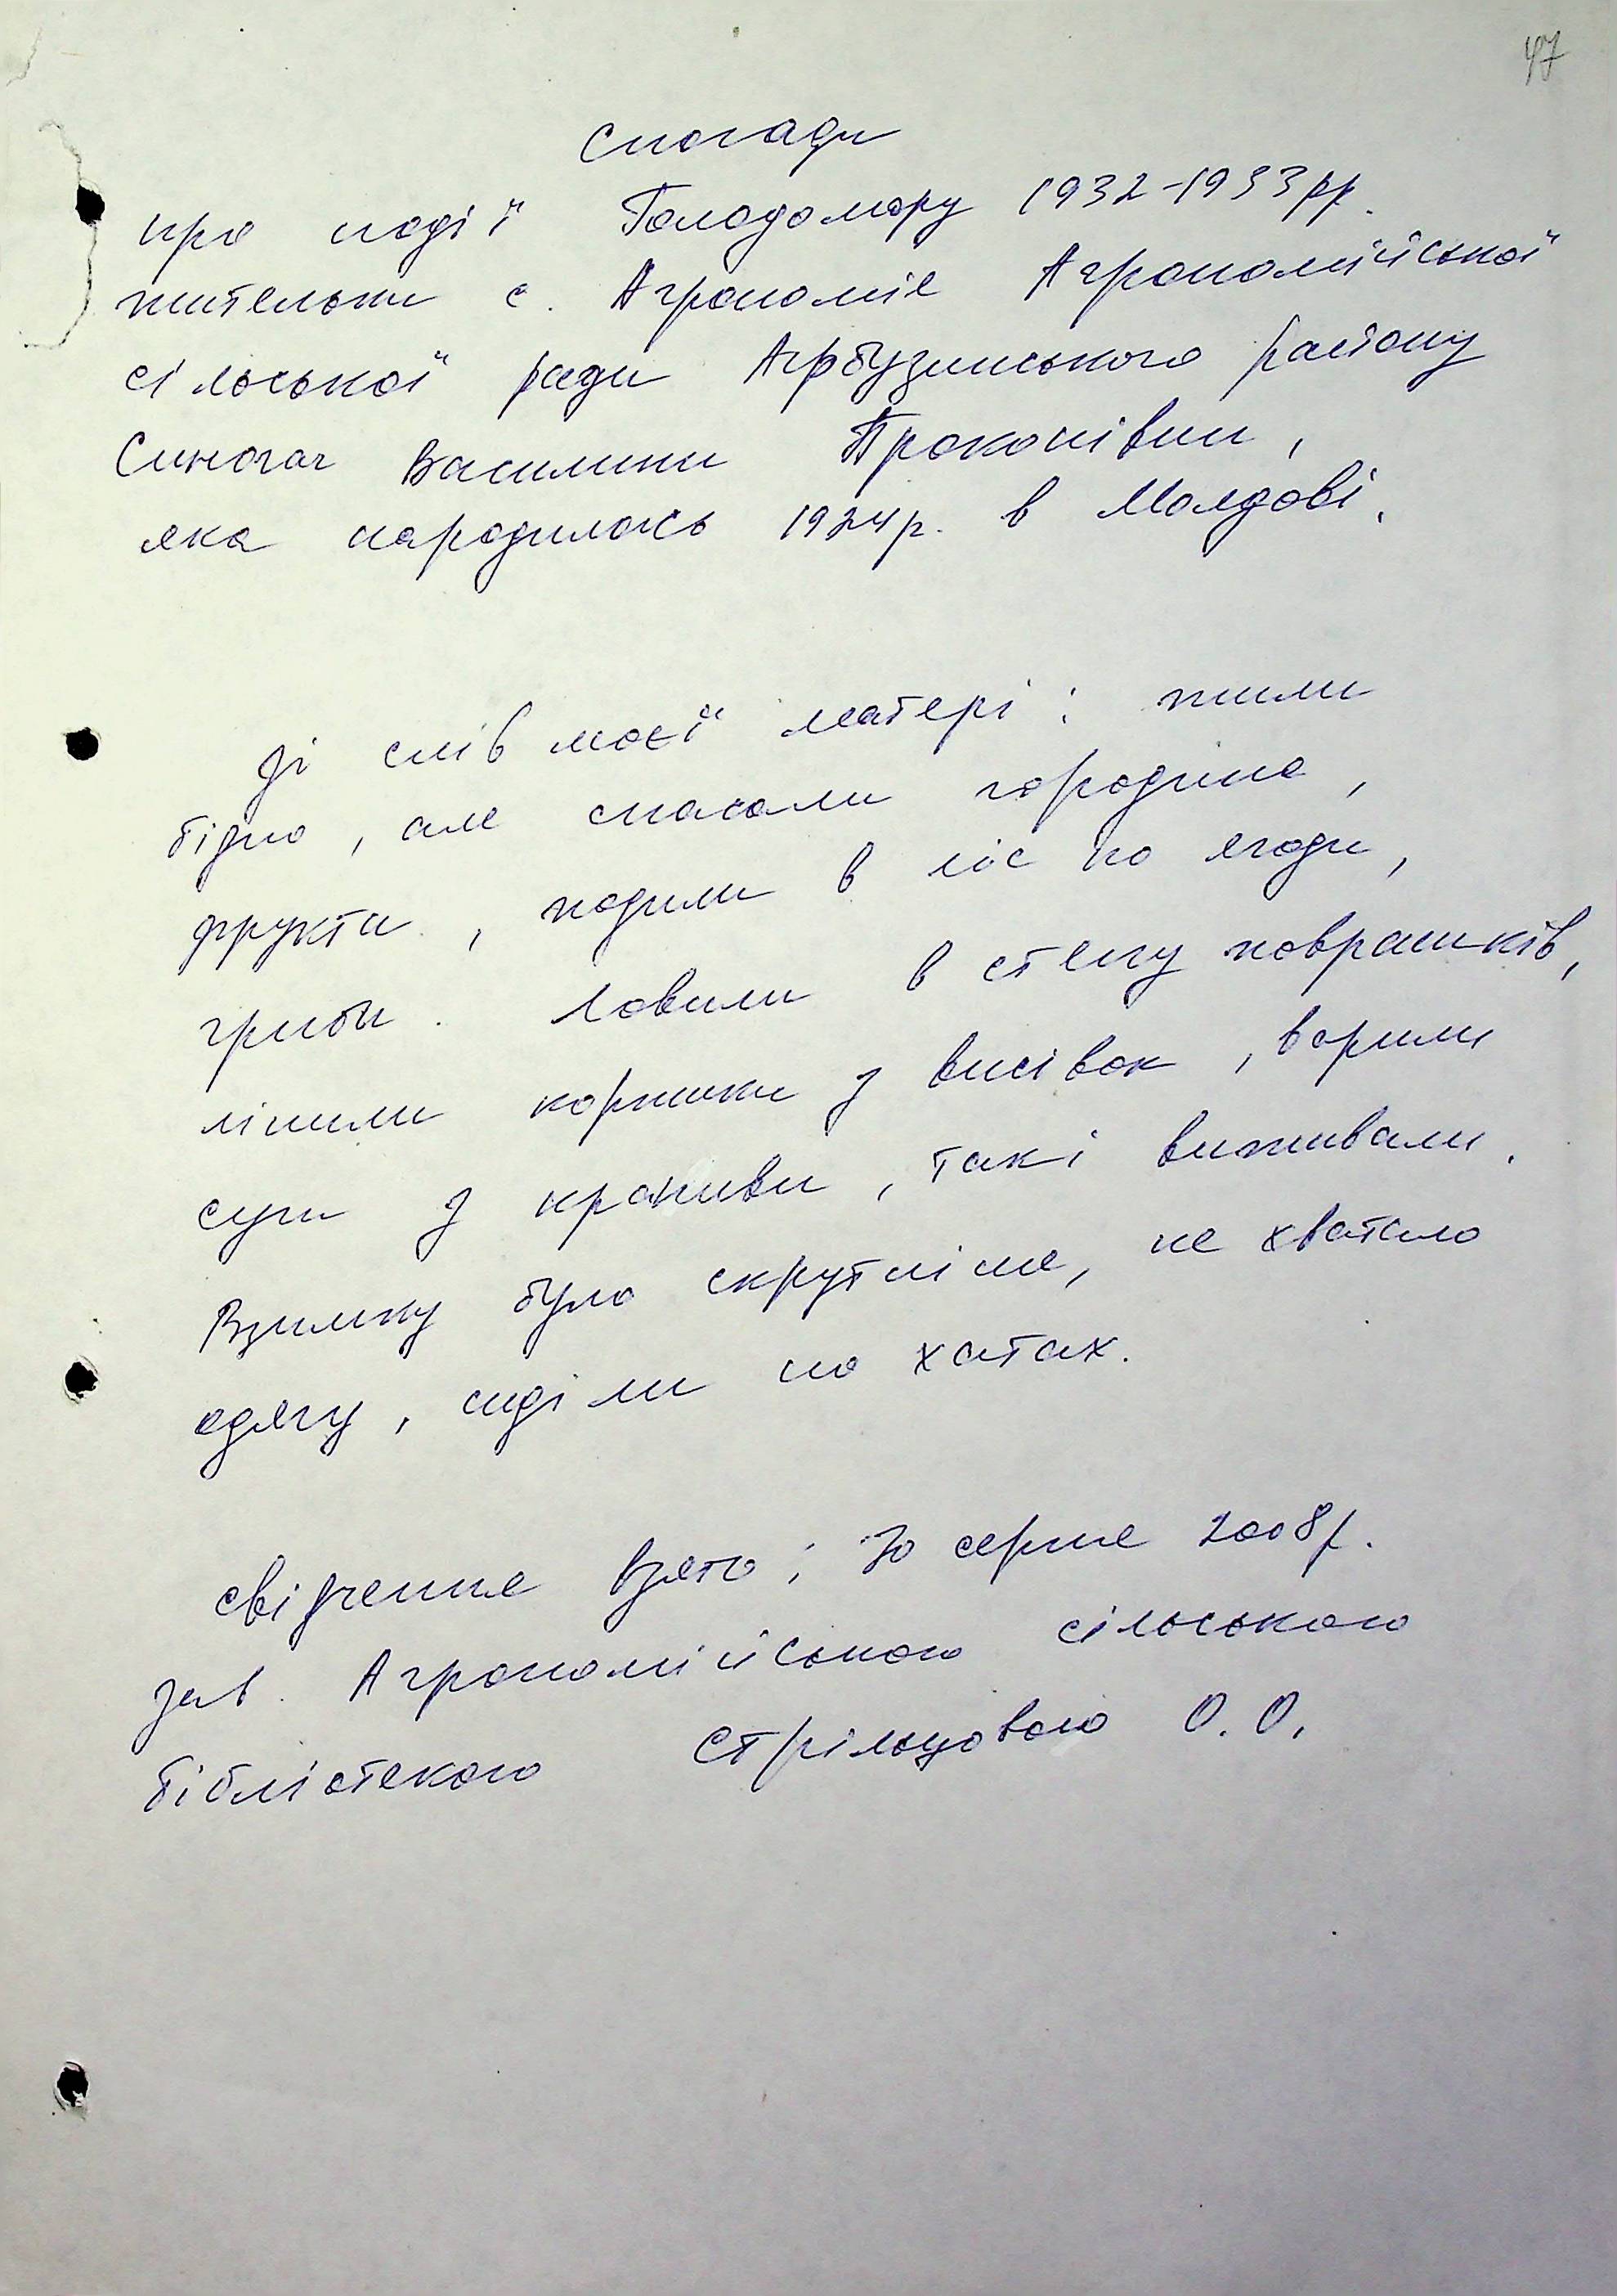 47
Спогади
про події Голодомору 1932-1933рр.
жительки с. Агрономія Агрономійської
сільської ради Арбузинського району
Синогач Василини Прокопівни,
яка народилась 1924р. в Молдові.
Зі слів моєї матері: жили
бідно, але спасали городина,
фрукти, ходили в ліс по ягоди,
гриби. Ловили в степу ховрашків,
ліпили коржики з висівок, варили
супи з кропиви, так і виживали.
Взимку було скрутніше, не хватало
одягу, сиділи по хатах.
свідчення взято: 30 серпня 2008р.
зав. Агрономійською сільською
бібліотекою Стрільцовою О.О.